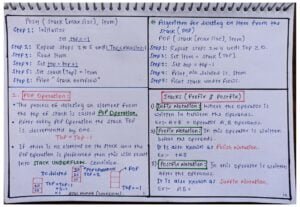 Push (Stack [max size], Item)
Step 1: Initialize
Set top = -1
Step 2: Repeat steps 3 to 5 until Top < max size - 1
Step 3: Read Item
Step 4: Set top = top + 1
Step 5: Set stack [top] = Item
Step 6: Print "Stack overflow"
2. POP Operation:
The process of deleting an element from the top of stack is called POP Operation.
After every POP operation the stack TOP is decremented by one
TOP = TOP - 1
If there is no element on the stack and the POP operation is performed then this will result into STACK UNDERFLOW condition.
Algorithm for deleting an item from the stack (POP)
POP (Stack [max size], Item)
Step 1: Repeat steps 2 to 4 until Top ≥ 0
Step 2: Set Item = Stack [top]
Step 3: Set top = top - 1
Step 4: Print, No. deleted is, Item
Step 5: Print stack under flows.
Stacks (Prefix & Postfix)
1) Infix Notation: Where the operator is written in-between the operands.
Ex:- A + B
2) Prefix Notation: In this operator is written before the operands.
It is also known as Polish Notation.
Ex:- +AB
3) Postfix Notation: In this operator is written after the operands.
It is also known as Suffix Notation.
Ex:- AB+